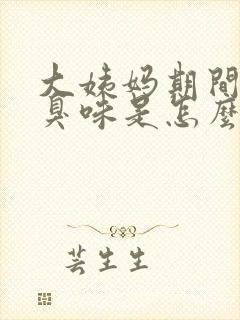 大姨妈期間
臭味是怎麼
芸生生